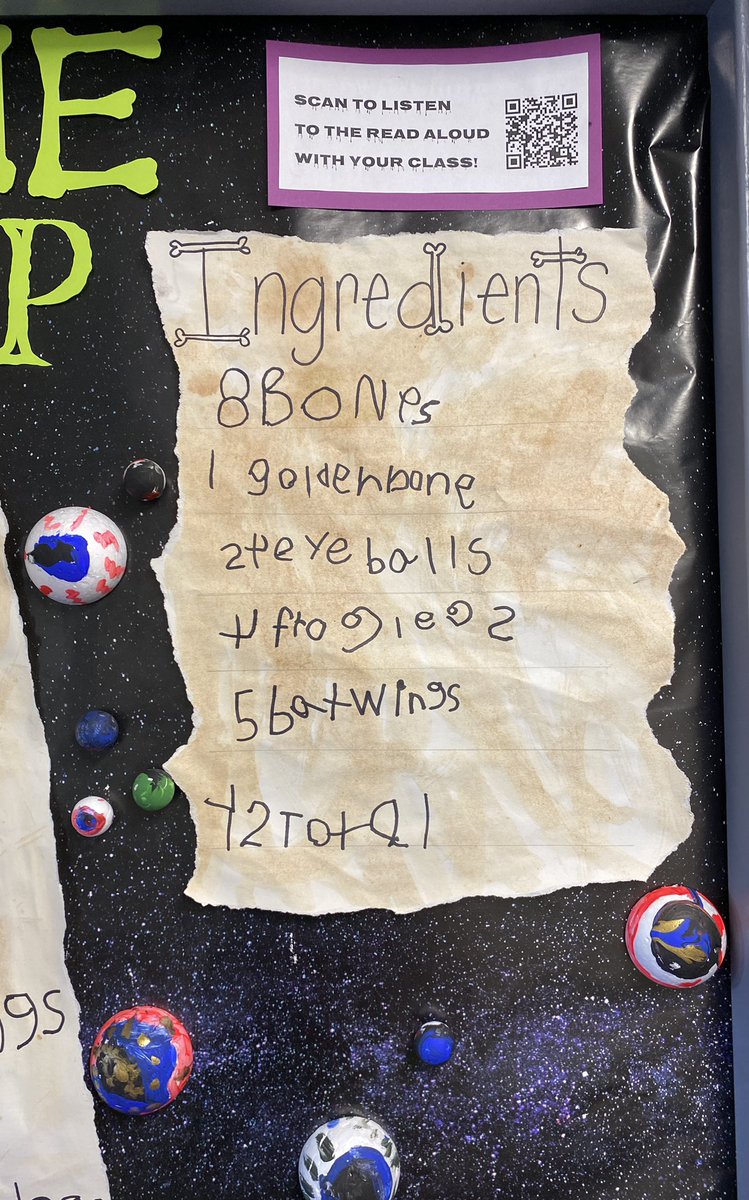 E
P
SCAN TO LISTEN
TO THE READ ALOUD
WITH YOUR CLASS!
Ingredients
8BONes
1 goldenbone
24eyeballs
4 froglegs
5batwings
42Total
gs